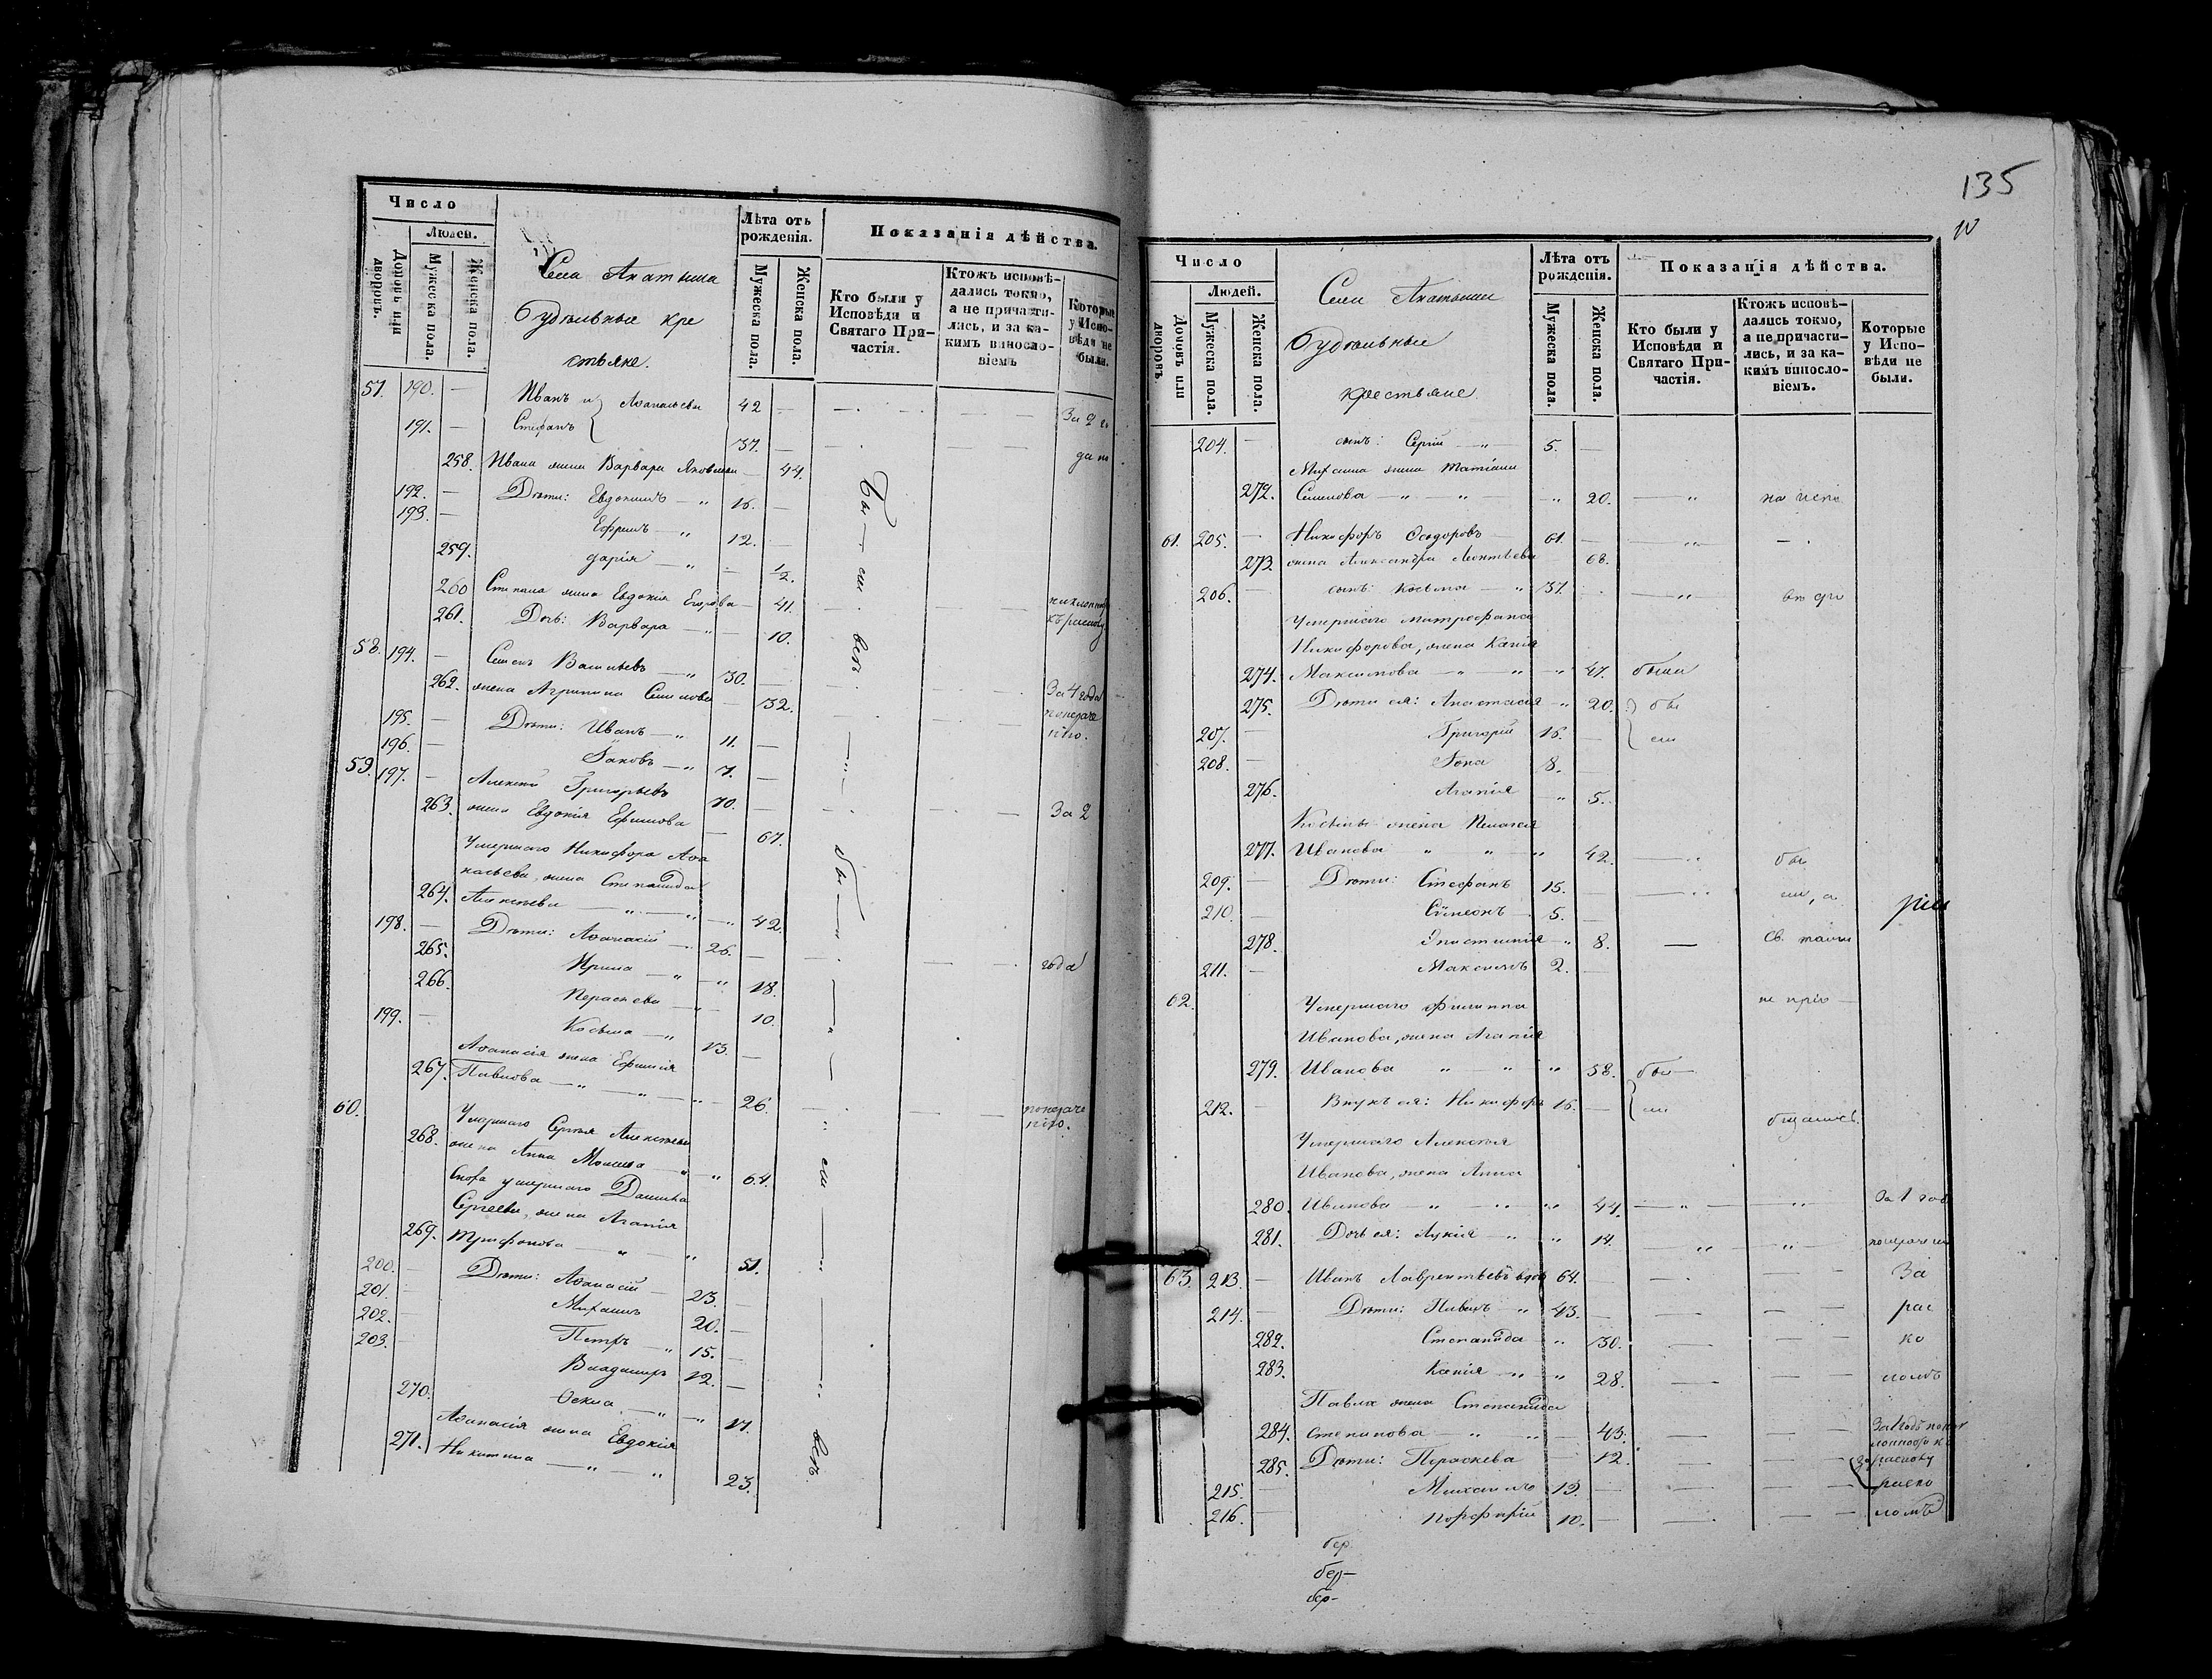 Число
Людей.
Домовъ или дворовъ.
Мужеска пола.
Женска пола.
Села
Удѣльные кре
стьяне.
Лѣта отъ рожденія.
Мужеска пола.
Женска пола.
Показанія дѣйства.
Кто были у Исповѣди и Святаго Причастія.
Ктожъ исповѣдались токмо, а не причастились, и за какимъ винословіемъ
Которые у Исповѣди не были.
57. 190. — Иванъ и } Аѳанасьевы 42 —
191. — Стефанъ 37. —
258. Ивана жена Варвара Яковлева — 44.
192. — Дѣти: Евдокимъ — „ 16. —
193. — Ефремъ — „ 12. —
259. Дарія — „ — 1/2.
260 Степана жена Евдокія Егорова — 41.
261. Дочь: Варвара — „ — 10.
58. 194. — Семенъ Васильевъ — „ 30. —
262. жена Агрипина Семенова — 32.
За 4 года
195. — Дѣти: Иванъ — „ 11. —
196. — Іаковъ — „ 7. —
59. 197. — Алексѣй Григорьевъ 70. —
263. жена Евдокія Ефимова — 67.
За 2
Умершаго Никифора Аѳа
насьева, жена Степанида
264. Алексѣева — „ — „ — „ 42.
198. — Дѣти: Аѳанасій — „ 26. —
265. Ирина — „ — „ 18.
года
266. Параскева — „ — 10.
199. — Косьма — „ 13. —
Аѳанасія жена Ефимія
267. Павлова — „ — „ — „ 26.
60. Умершаго Сергѣя Алексѣева
268. жена Анна Моисеева — „ „ 64.
Сына умершаго Даниила
Сергеева, жена Агапія
269. Трифонова — „ — „ 51.
200. — Дѣти: Аѳанасій — 23. —
201. — Михаилъ 20. —
202. — Петръ — „ 15. —
203. — Владимиръ 12. —
270. Ѳекла — „ — „ 17.
Аѳанасія жена Евдокія
271. Никитина — „ — „ 23.
135
Число
Людей.
Домовъ или дворовъ.
Мужеска пола.
Женска пола.
Села
Удѣльные
крестьяне.
Лѣта отъ рожденія.
Мужеска пола.
Женска пола.
Показанія дѣйства.
Кто были у Исповѣди и Святаго Причастія.
Ктожъ исповѣдались токмо, а не причастились, и за какимъ винословіемъ.
Которые у Исповѣди не были.
204. — сынъ: Сергій — „ — 5. —
Михаила жена Татіана
272. Семенова — „ — „ — „ 20. — „ на испо
61. 205. — Никифоръ Ѳедоровъ 61. — — „ —
273. жена Александра Леонтьева 68.
206. — сынъ: Косьма — „ 37. — „ вѣ ди
Умершаго Митрофана
Никифорова, жена Ксенія
274. Максимова — „ — „ — „ 47. были
275. Дѣти ея: Анастасія — „ 20. } бы
207. — Григорій 16. — ли
208. — Іона 8. —
276. Агапія — „ 5.
Косьмы жена Пелагея
277. Иванова „ „ „ 42. — „ бы
209. — Дѣти: Стефанъ 15. — — „ ли, а
210. — Сѵмеонъ 5. —
278. Эпистимія — „ 8. — Св. таинъ
211. — Максимъ 2. —
62. Умершаго Филиппа не прiо —
Иванова, жена Агапія
279. Иванова „ — „ — „ 58. бы —
212. — Внукъ ея: Никифоръ 16. — ли бщались.
Умершаго Алексѣя
Иванова, жена Анна
280. Иванова — „ — „ — „ 44. — „ — „ За 1 годъ
281. Дочь ея: Лукія — „ „ 14. — „ — „
63. 213. — Иванъ Лаврентьевъ вдовъ 64. — — — За
214. — Дѣти: Павелъ — „ 43. — — — рас
282. Степанида „ 30. — — ко
283. Ксенія — „ „ 28. — — ломъ
Павла жена Степанида
284. Степанова — „ — „ — 43. — —
285. Дѣти: Параскева — 12. — — раско
215. — Михаилъ 13. — — —
216. — Порфирій 10. — — — ломъ